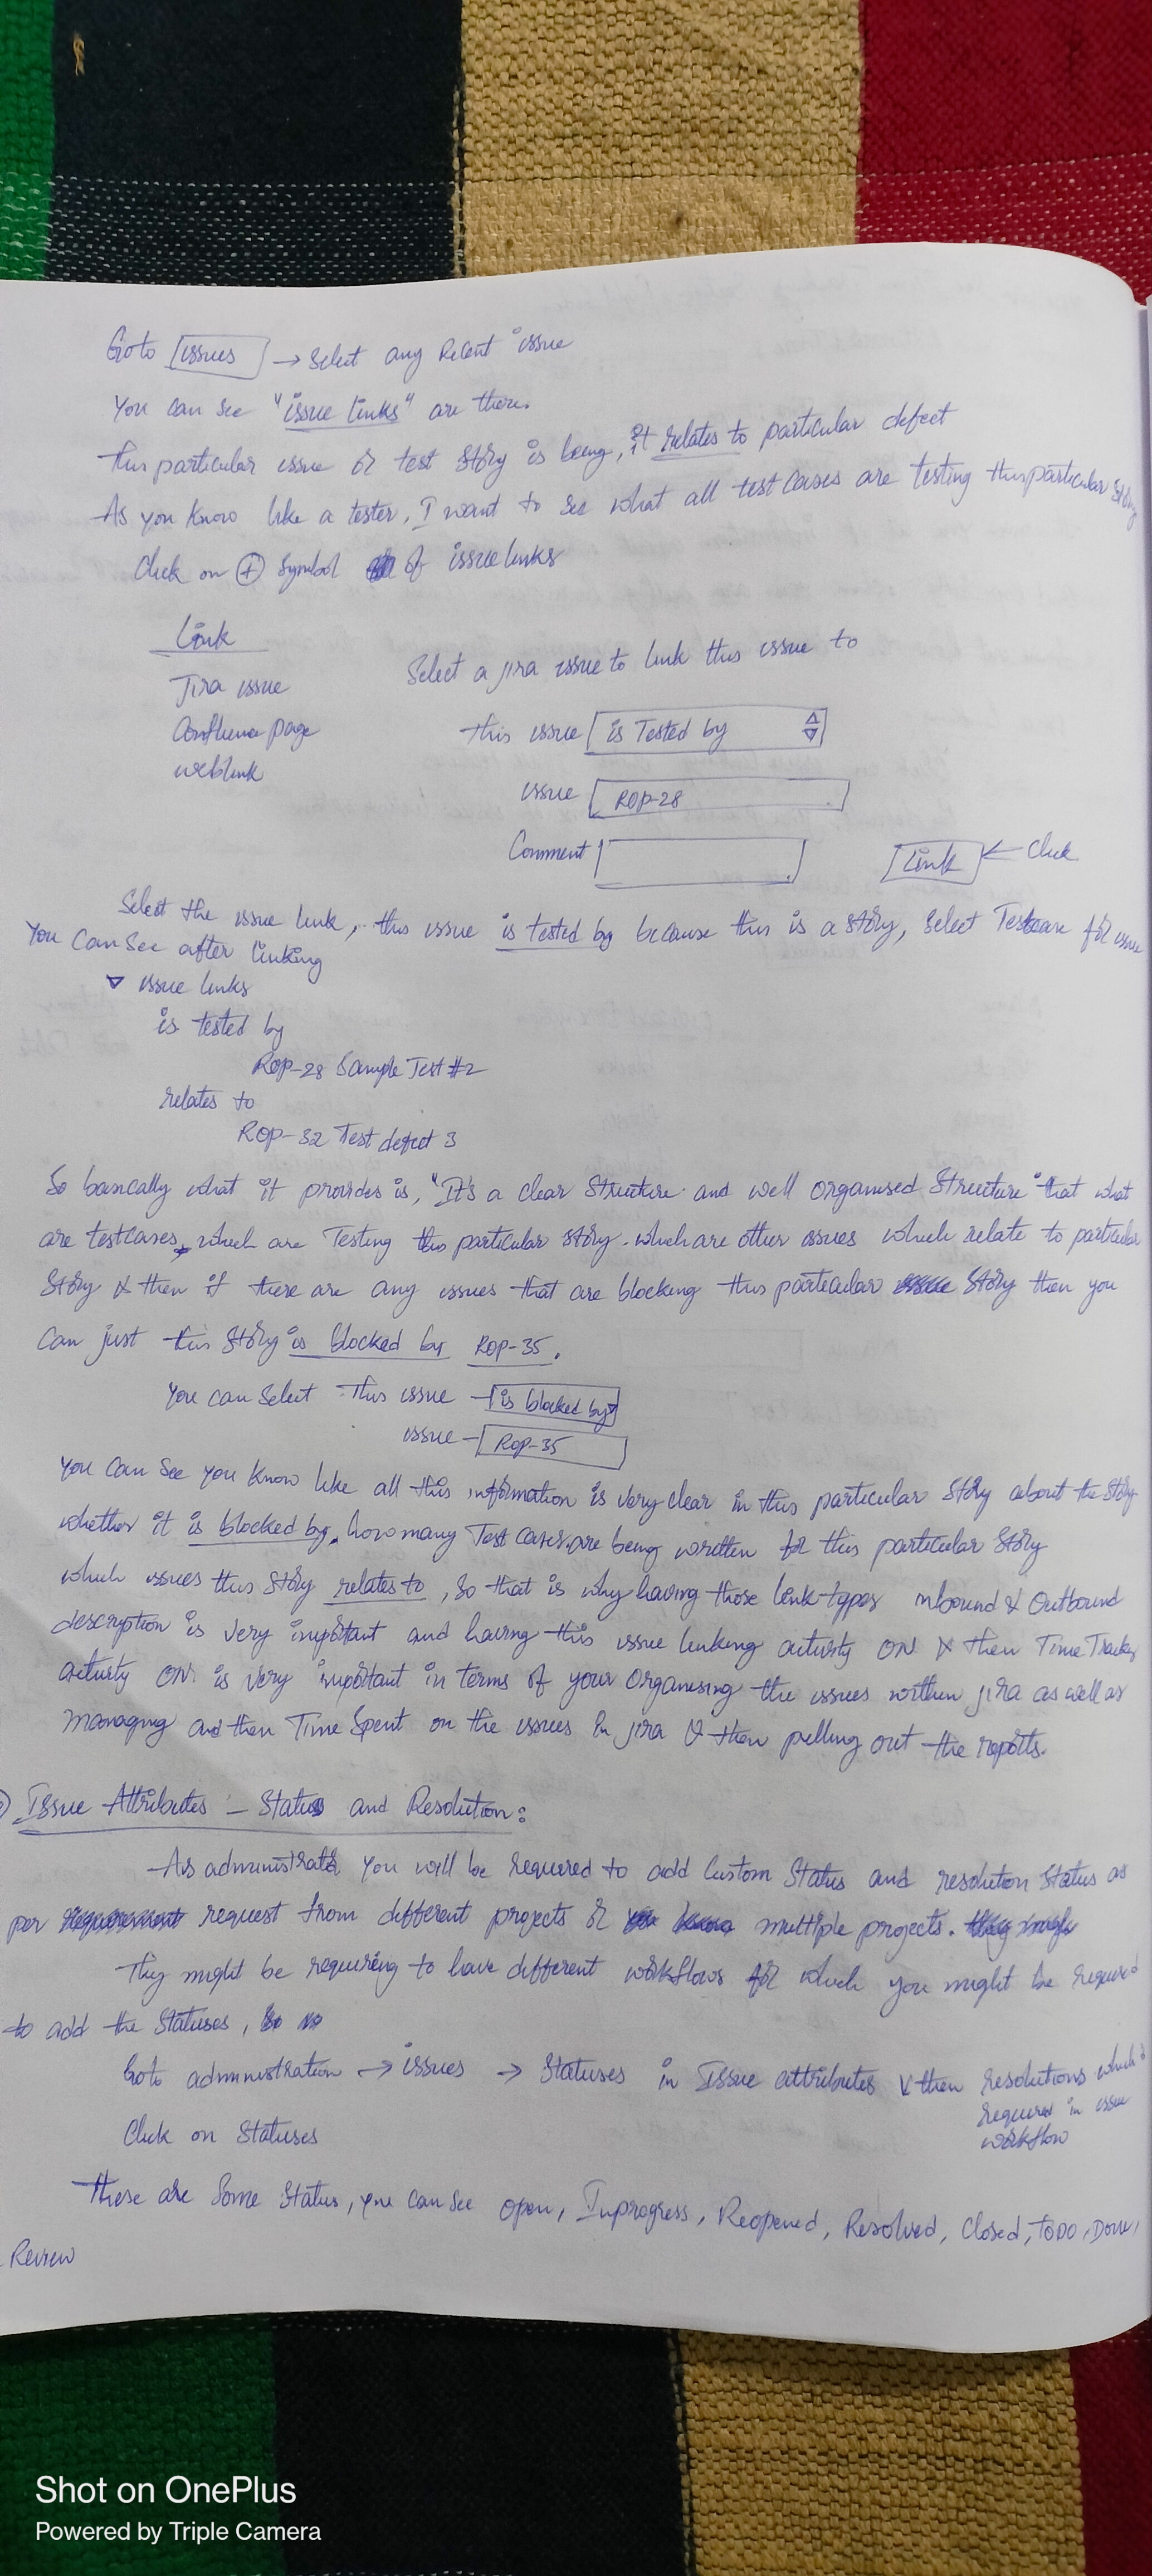 Goto [issues] → Select any Recent issue
You can see "issue links" are there.
This particular issue or test story is being, it relates to particular defect
As you know like a tester, I want to see what all test cases are testing this particular story
Click on ⊕ symbol of issue links
Link
Jira issue
Confluence page
weblink
Select a jira issue to link this issue to
This issue [is Tested by]
issue [ROP-28]
Comment [ ]
[Link] ← Click
Select the issue link, this issue is tested by because this is a story, select Testcase for issue
You can see after linking
▽ issue links
is tested by
ROP-28 Sample Test #2
relates to
ROP-32 Test defect 3
So basically what it provides is, "It's a clear Structure and well organised Structure" that what
are testcases, which are Testing this particular story. which are other issues which relate to particular
Story & then if there are any issues that are blocking this particular story then you
can just this story is blocked by ROP-35.
You can select This issue – [is blocked by]
issue – [ROP-35]
You can see you know like all this information is very clear in this particular story about the story
whether it is blocked by, how many Test cases are being written for this particular story
which issues this story relates to, so that is why having those link types inbound & Outbound
description is very important and having this issue linking activity ON & then Time Tracking
activity ON is very important in terms of your organising the issues within jira as well as
managing and then Time Spent on the issues in jira & then pulling out the reports.
Issue Attributes – Status and Resolution:
As administrator you will be required to add Custom Status and resolution Status as
per request from different projects or multiple projects.
They might be requiring to have different workflows for which you might be required
to add the statuses,
Goto administration → issues → Statuses in Issue attributes & then resolutions which is
required in issue
workflow
Click on Statuses
These are some status, you can see open, Inprogress, Reopened, Resolved, Closed, TODO, Done,
Review
Shot on OnePlus
Powered by Triple Camera